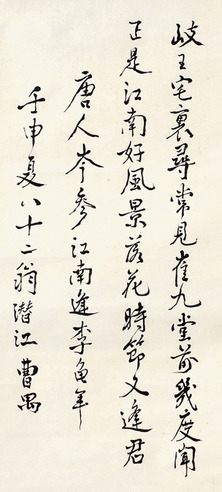 歧王宅裏尋常見崔九堂前幾度聞
正是江南好風景落花時節又逢君
唐人岑參江南逢李龜年
壬申夏八十二翁潜江曹禺